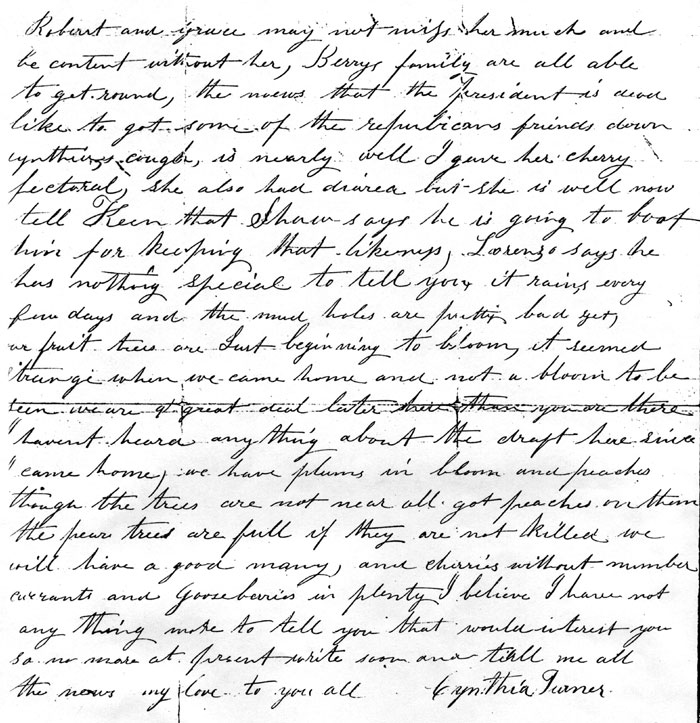 Robert and grace may not miss her much and
be content without her, Berrys family are all able
to get round, the news that the President is dead
like to got some of the republicans friends down
cynthias cough, is nearly well I gave her cherry
pectoral, she also had diarea but she is well now
tell Keen that Shaw says he is going to boot
him for keeping that likeness, Lorenzo says he
has nothing special to tell you, it rains every
few days and the mud holes are pretty bad yet,
our fruit trees are Just beginning to bloom, it seemed
strange when we came home and not a bloom to be
seen we are a great deal later here than you are there
havent heard any thing about the draft here since
came home, we have plums in bloom and peaches
though the trees are not near all got peaches on them
the pear trees are full if they are not killed we
will have a good many, and cherries without number
currants and Gooseberries in plenty I believe I have not
any thing more to tell you that would interest you
so no more at present write soon and tell me all
the news my love to you all Cynthia Turner